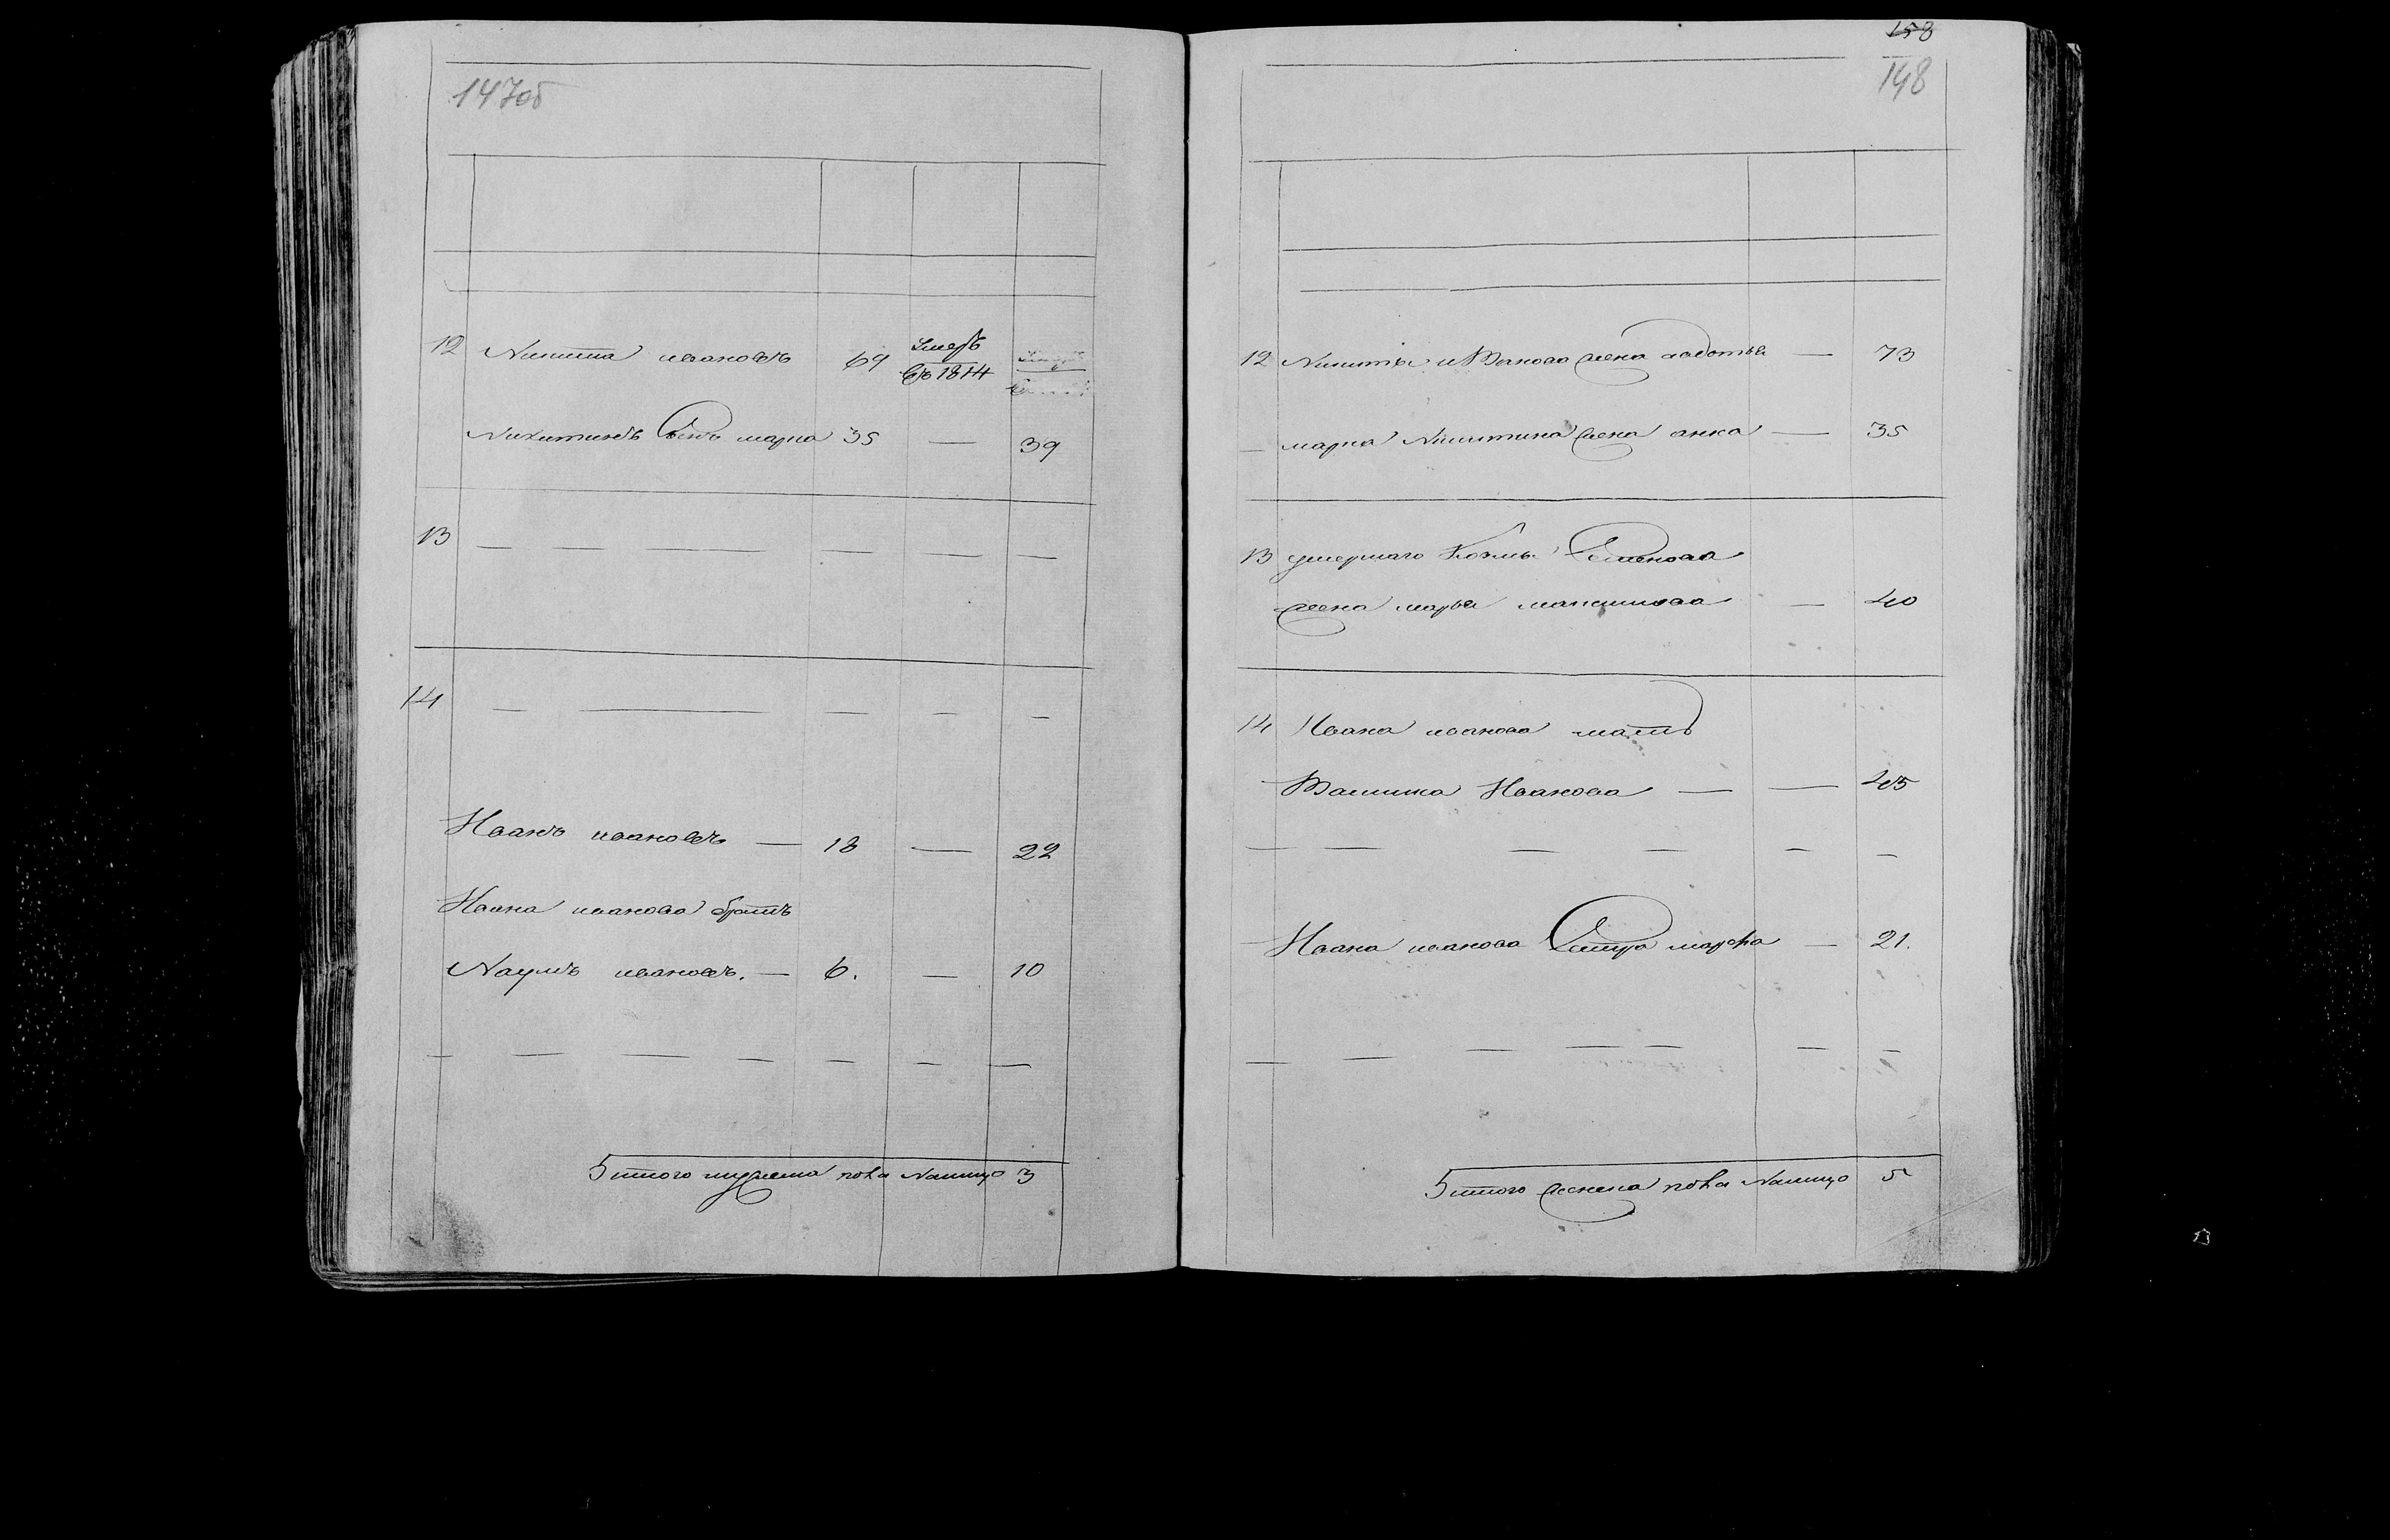 147об
12 Никита ивановъ 69 Умеръ
въ 1814
Никитинъ сынъ марка 35 — 39
13 — — — — — —
14 — — — — —
Иванъ ивановъ — 18 — 22
Ивана иванова братъ
Наумъ ивановъ. — 6. — 10
— — — — — — —
Итого мужеска пола Налицо 3
158
148
12 Никиты иванова жена авдотья — 73
— марка Никитина жена анна — 35
13 умершаго Козмы Семенова
жена марья максимова — 40
14 Ивана иванова мать
Иванова — — 45
— — — — — —
Ивана иванова Сестра марфа — 21.
— — — — — — —
Итого женска пола Налицо 5